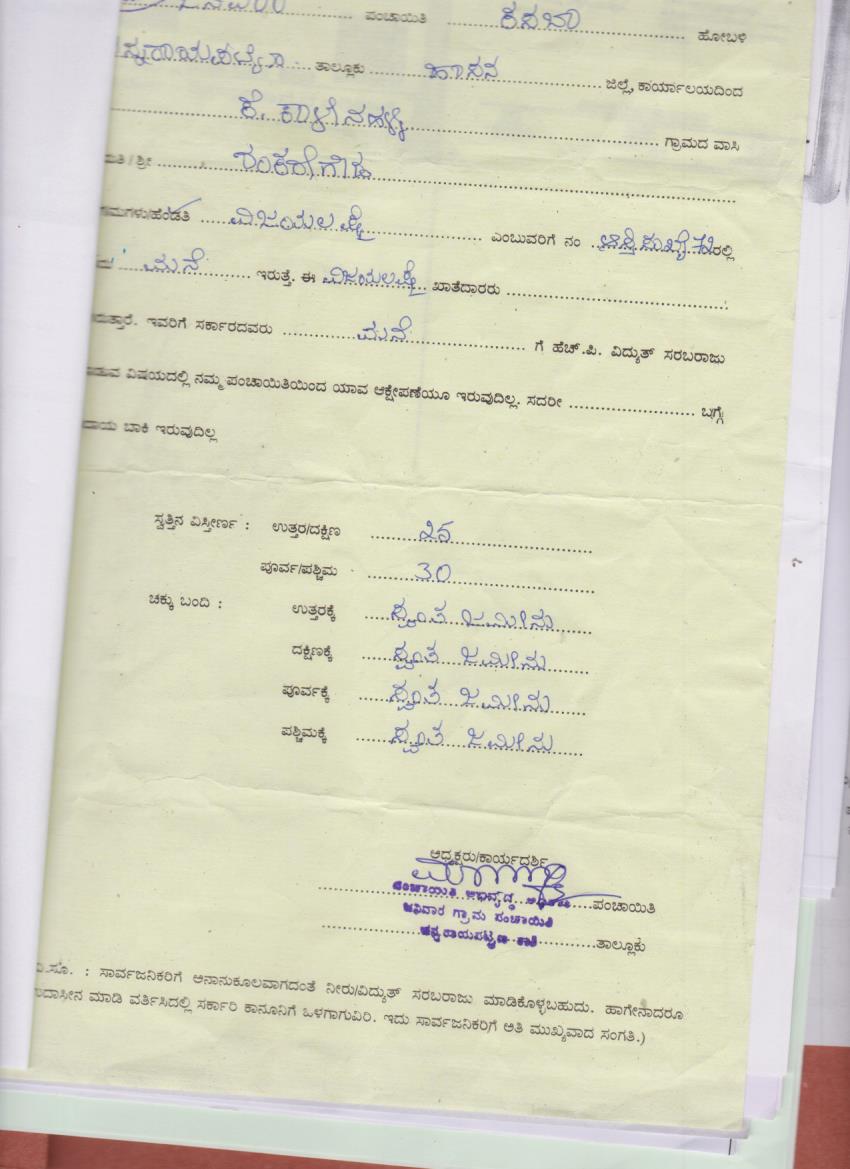 ಪಂಚಾಯಿತಿ ಕಸಬಾ ಹೋಬಳಿ
ತಾಲ್ಲೂಕು ಹಾಸನ ಜಿಲ್ಲೆ, ಕಾರ್ಯಾಲಯದಿಂದ
ಕೆ. ಗ್ರಾಮದ ವಾಸಿ
ಮತಿ / ಶ್ರೀ ಶಂಕರೇಗೌಡ
ಮಗಳು/ಹೆಂಡತಿ ವಿಜಯಲಕ್ಷ್ಮೀ ಎಂಬುವರಿಗೆ ನಂ ರಲ್ಲಿ
ಮನೆ ಇರುತ್ತೆ. ಈ ವಿಜಯಲಕ್ಷ್ಮೀ ಖಾತೆದಾರರು
ರುತ್ತಾರೆ. ಇವರಿಗೆ ಸರ್ಕಾರದವರು ಮನೆ ಗೆ ಹೆಚ್.ಪಿ. ವಿದ್ಯುತ್ ಸರಬರಾಜು
ವ ವಿಷಯದಲ್ಲಿ ನಮ್ಮ ಪಂಚಾಯಿತಿಯಿಂದ ಯಾವ ಆಕ್ಷೇಪಣೆಯೂ ಇರುವುದಿಲ್ಲ. ಸದರೀ ಬಗ್ಗೆ
ದಾಯ ಬಾಕಿ ಇರುವುದಿಲ್ಲ
ಸ್ವತ್ತಿನ ವಿಸ್ತೀರ್ಣ : ಉತ್ತರ/ದಕ್ಷಿಣ ೨೫
ಪೂರ್ವ/ಪಶ್ಚಿಮ 30
ಚಕ್ಕು ಬಂದಿ : ಉತ್ತರಕ್ಕೆ ಸ್ವಂತ ಜಮೀನು
ದಕ್ಷಿಣಕ್ಕೆ ಸ್ವಂತ ಜಮೀನು
ಪೂರ್ವಕ್ಕೆ ಸ್ವಂತ ಜಮೀನು
ಪಶ್ಚಿಮಕ್ಕೆ ಸ್ವಂತ ಜಮೀನು
ಅಧ್ಯಕ್ಷರು/ಕಾರ್ಯದರ್ಶಿ
ಪಂಚಾಯಿತಿ ಪಂಚಾಯಿತಿ
ಗ್ರಾಮ ಪಂಚಾಯಿತಿ
ತಾಲ್ಲೂಕು
ವಿ.ಸೂ. : ಸಾರ್ವಜನಿಕರಿಗೆ ಅನಾನುಕೂಲವಾಗದಂತೆ ನೀರು/ವಿದ್ಯುತ್ ಸರಬರಾಜು ಮಾಡಿಕೊಳ್ಳಬಹುದು. ಹಾಗೇನಾದರೂ
ದಾಸೀನ ಮಾಡಿ ವರ್ತಿಸಿದಲ್ಲಿ ಸರ್ಕಾರಿ ಕಾನೂನಿಗೆ ಒಳಗಾಗುವಿರಿ. ಇದು ಸಾರ್ವಜನಿಕರಿಗೆ ಅತಿ ಮುಖ್ಯವಾದ ಸಂಗತಿ.)